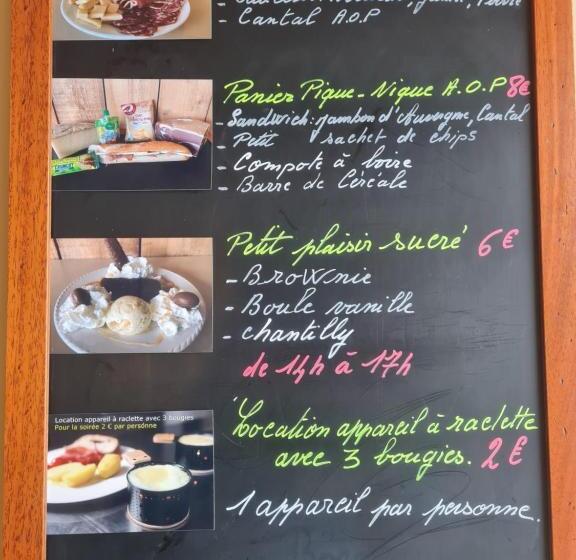 - Cantal A.O.P
Panier Pique-Nique A.O.P 8€
- Sandwich: jambon d'Auvergne, Cantal
- Petit sachet de chips
- Compote à boire
- Barre de Céréale
Petit plaisir sucré 6€
- Brownie
- Boule vanille
- chantilly
de 14h à 17h
Location appareil à raclette avec 3 bougies
Pour la soirée 2 € par personne
Location appareil à raclette
avec 3 bougies. 2€
1 appareil par personne.